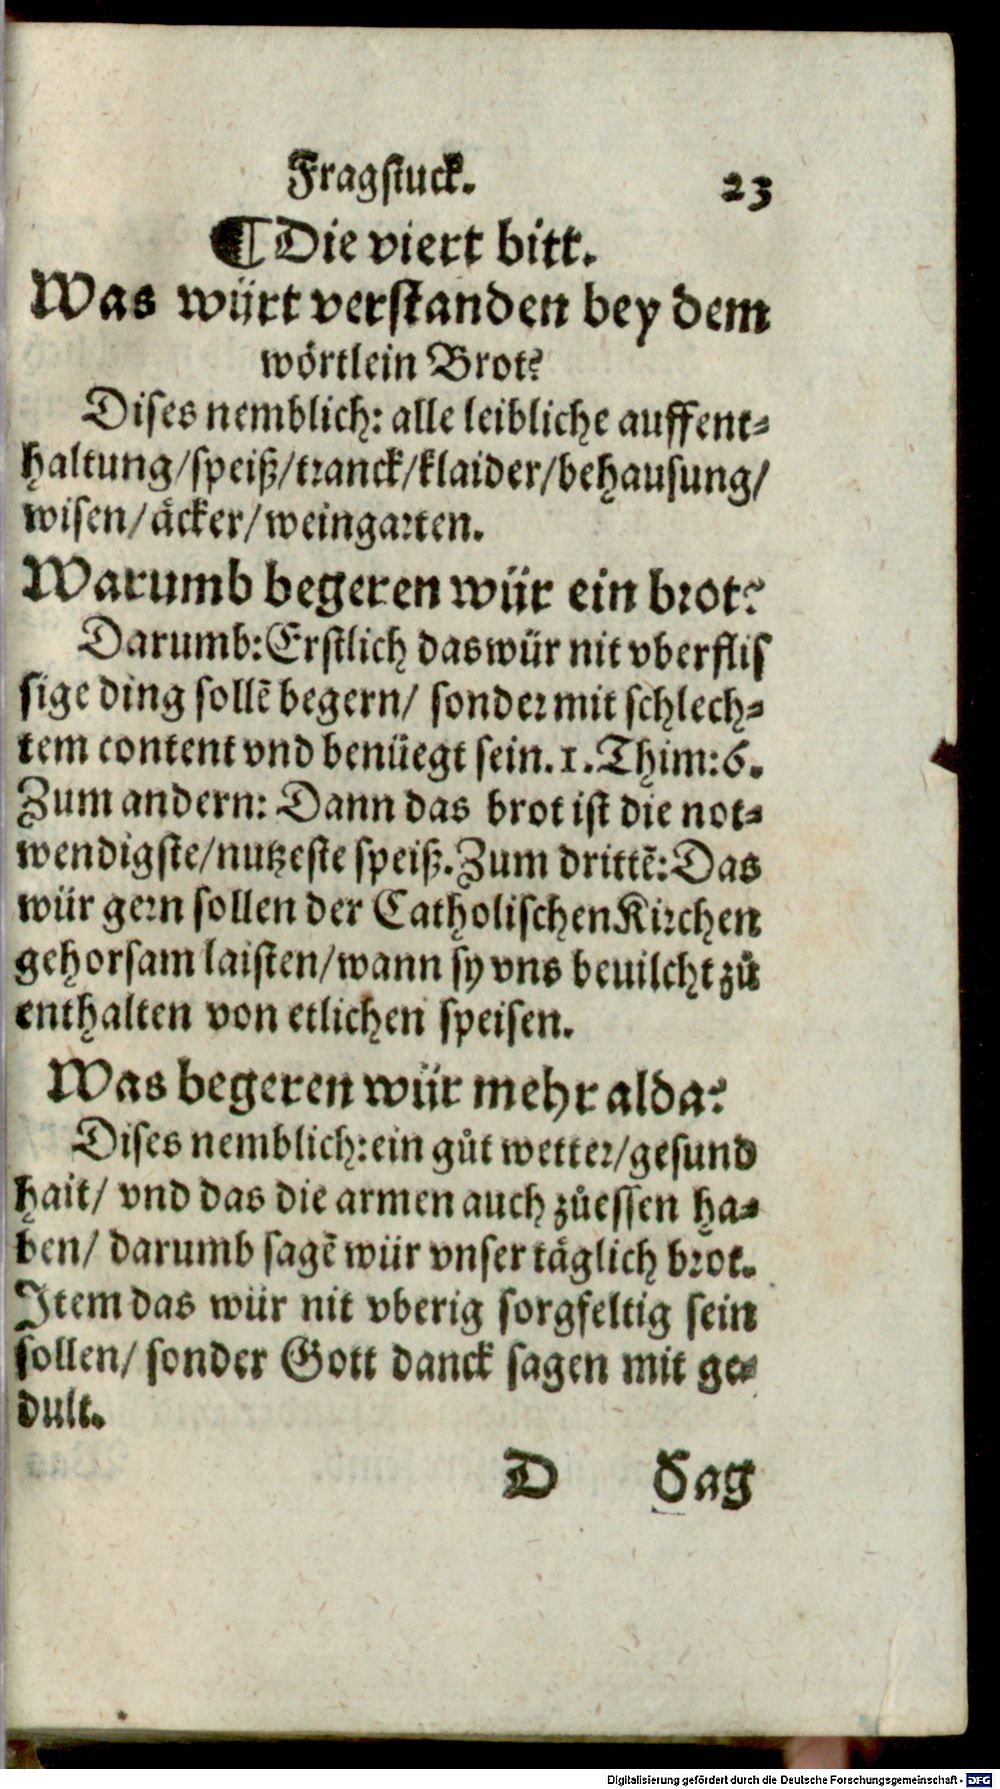 Fragstuck. 23
¶Die viert bitt.
Was würt verstanden bey dem
wörtlein Brot?
Dises nemblich: alle leibliche auffent-
haltung/speiß/tranck/klaider/behausung/
wisen/äcker/weingarten.
Warumb begeren wür ein brot?
Darumb:Erstlich das wür nit vberflis
sige ding sollē begern/ sonder mit schlech-
tem content vnd benüegt sein. 1. Thim:6.
Zum andern: Dann das brot ist die not-
wendigste/nutzeste speiß. Zum drittē: Das
wür gern sollen der Catholischen Kirchen
gehorsam laisten/wann sy vns beuilcht zů
enthalten von etlichen speisen.
Was begeren wür mehr alda?
Dises nemblich:ein gůt wetter/gesund
hait/ vnd das die armen auch zůessen ha-
ben/ darumb sagē wür vnser täglich brot.
Item das wür nit vberig sorgfeltig sein
sollen/ sonder Gott danck sagen mit ge-
dult.
D Sag
Digitalisierung gefördert durch die Deutsche Forschungsgemeinschaft - DFG